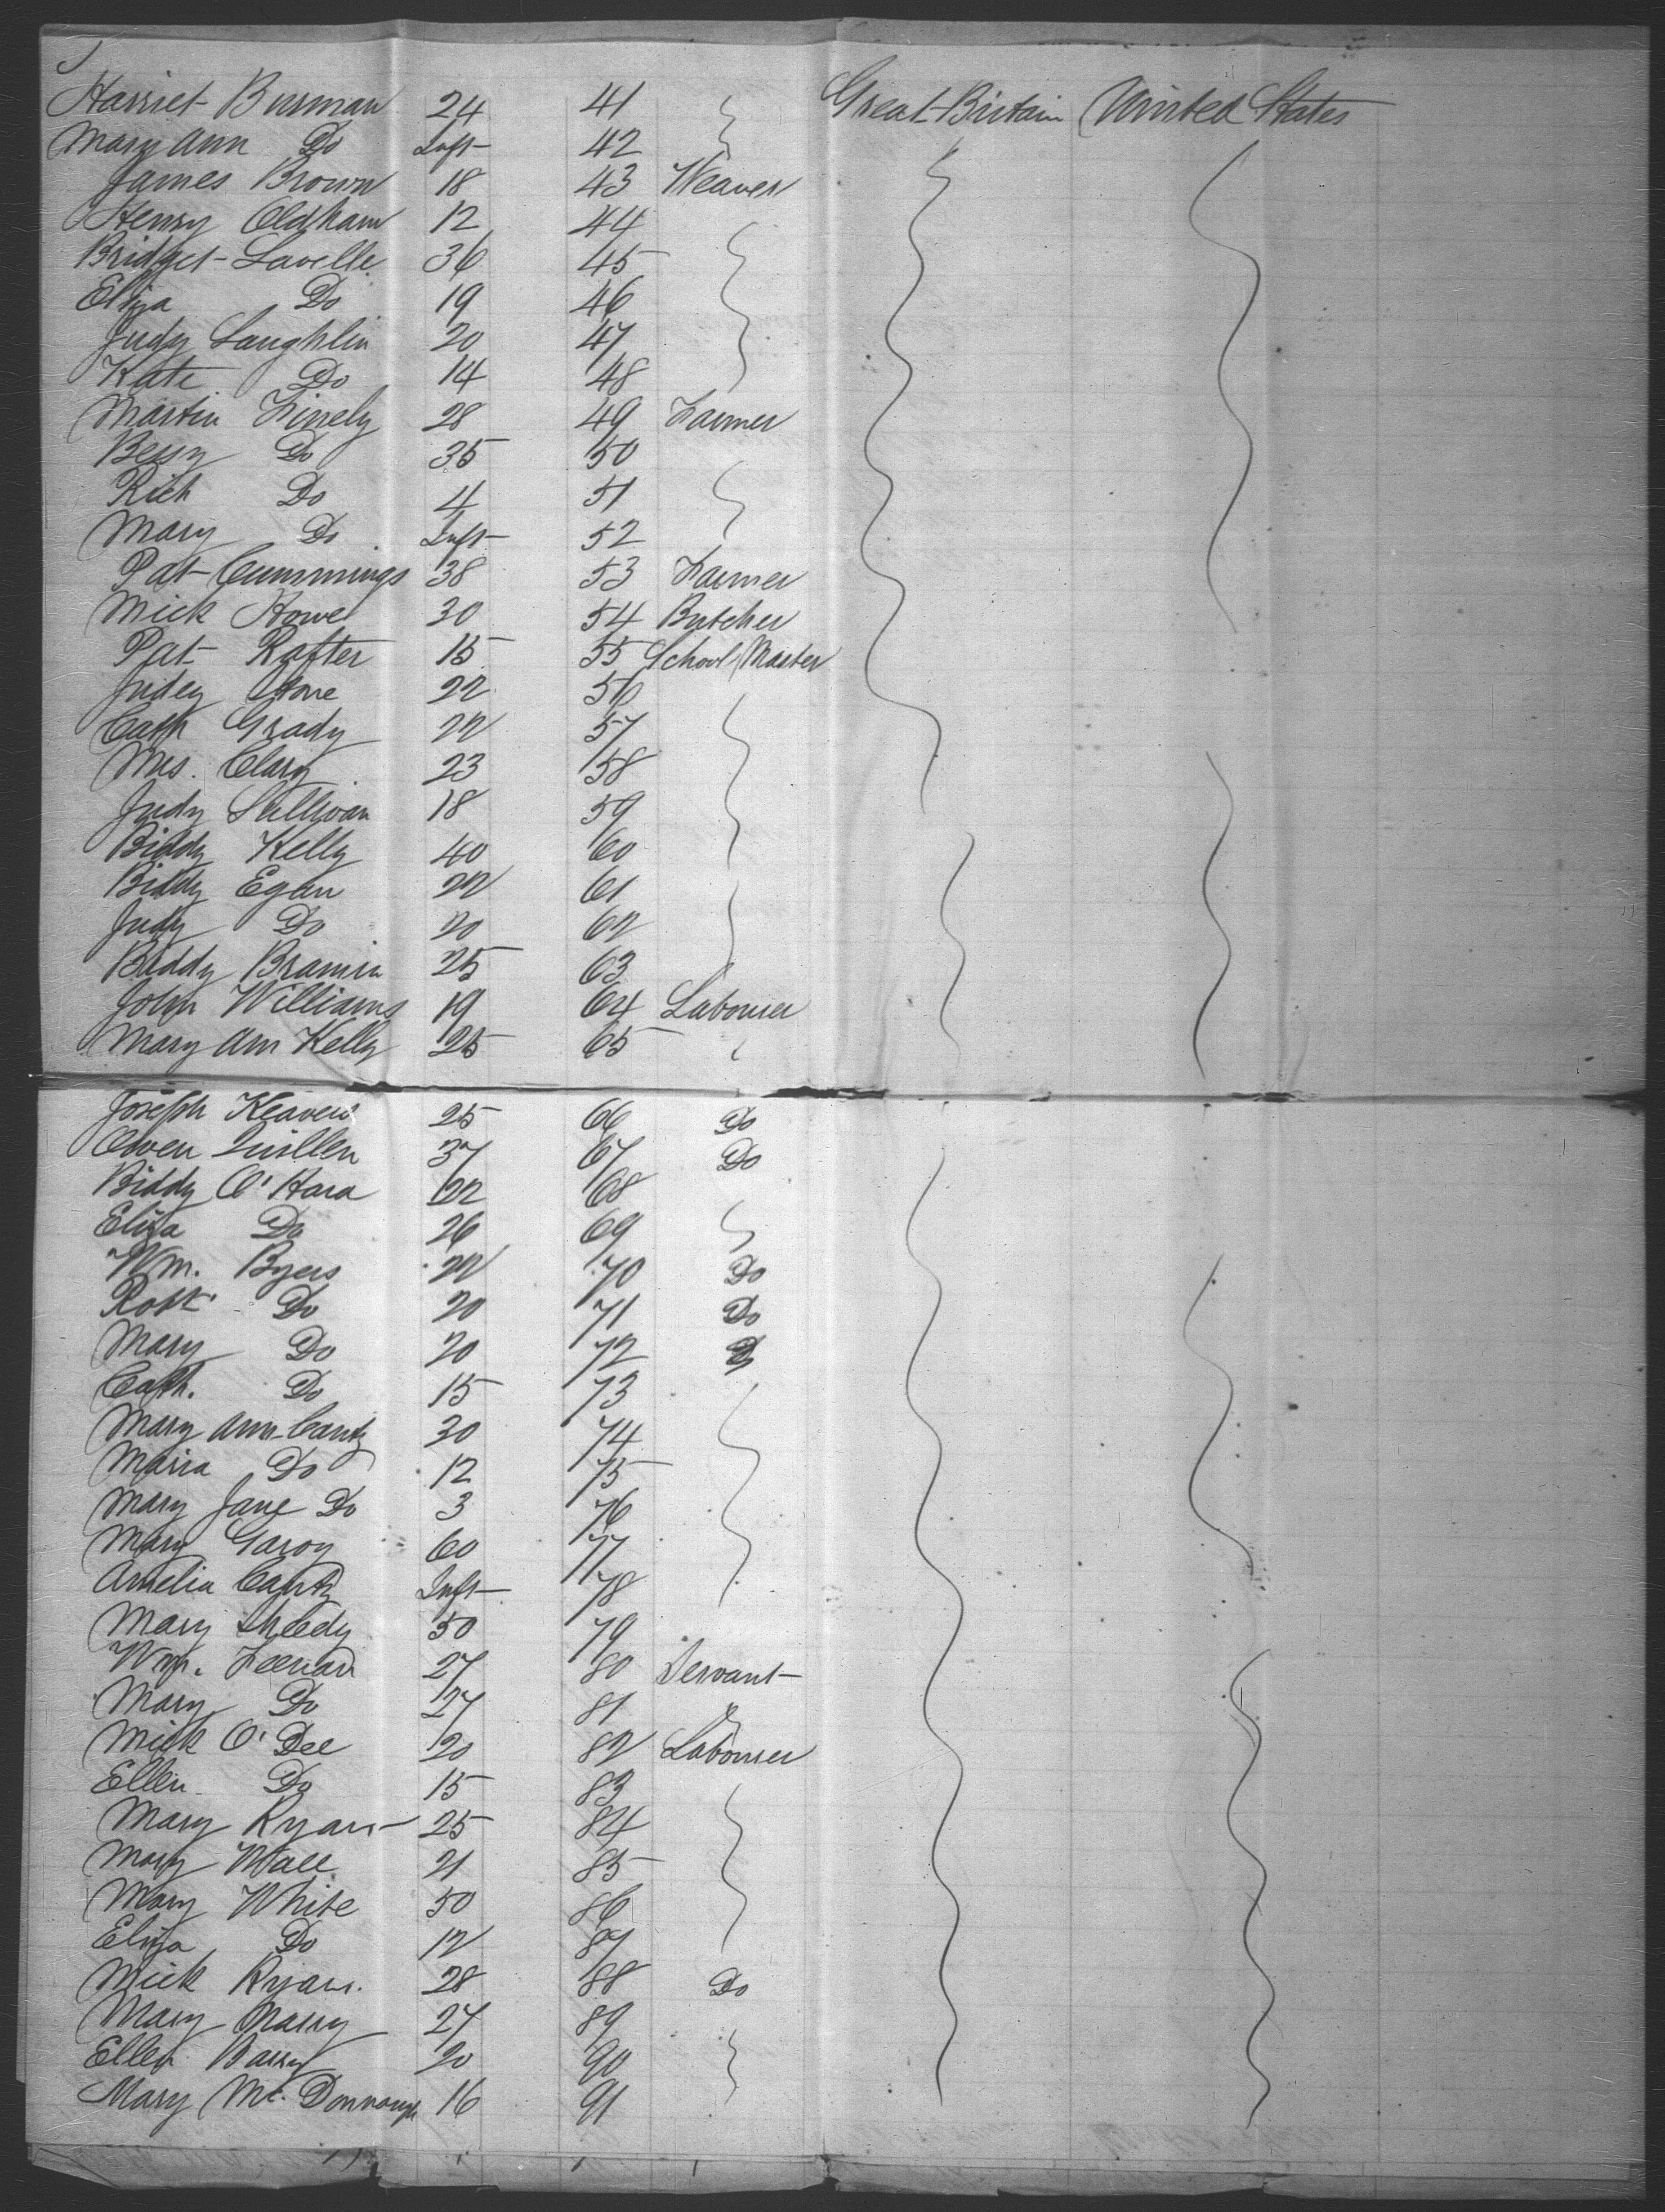 Harriet Burman 24 41 Great Britain United States
Mary Ann Do Inft 42
James Brown 18 43 Weaver
Henry Oldham 12 44
Bridget Lavelle 36 45
Eliza Do 19 46
Judy Laughlin 20 47
Kate Do 14 48
Martin Finely 28 49 Farmer
Bessy Do 35 50
Rich Do 4 51
Mary Do Inft 52
Pat Cummings 38 53 Farmer
Mick Howe 30 54 Butcher
Pat Rafter 15 55 School Master
Judey 22 56
Cath Grady 22 57
Mrs. Clary 23 58
Judy Sullivan 18 59
Biddy Kelly 40 60
Biddy Egan 22 61
Judy Do 20 62
Biddy 25 63
John Williams 19 64 Labourer
Mary Ann Kelly 25 65
Joseph 25 66 Do
Owen Quillen 37 67 Do
Biddy O'Hara 22 68
Eliza Do 26 69
Wm. Byers 22 70 Do
Robt Do 20 71 Do
Mary Do 20 72
Cath. Do 15 73
Mary Ann Canty 30 74
Maria Do 12 75
Mary Jane Do 3 76
Mary 60 77
Amelia Canty Inft 78
Mary Sheedy 50 79
Wm. 27 80 Servant
Mary Do 27 81
Mick O'Dee 20 82 Labourer
Ellen Do 15 83
Mary Ryan 25 84
Mary Wall 21 85
Mary White 50 86
Eliza Do 12 87
Mick Ryan. 28 88 Do
Mary 27 89
Ellen Barry 20 90
Mary Mc. Donnough 16 91